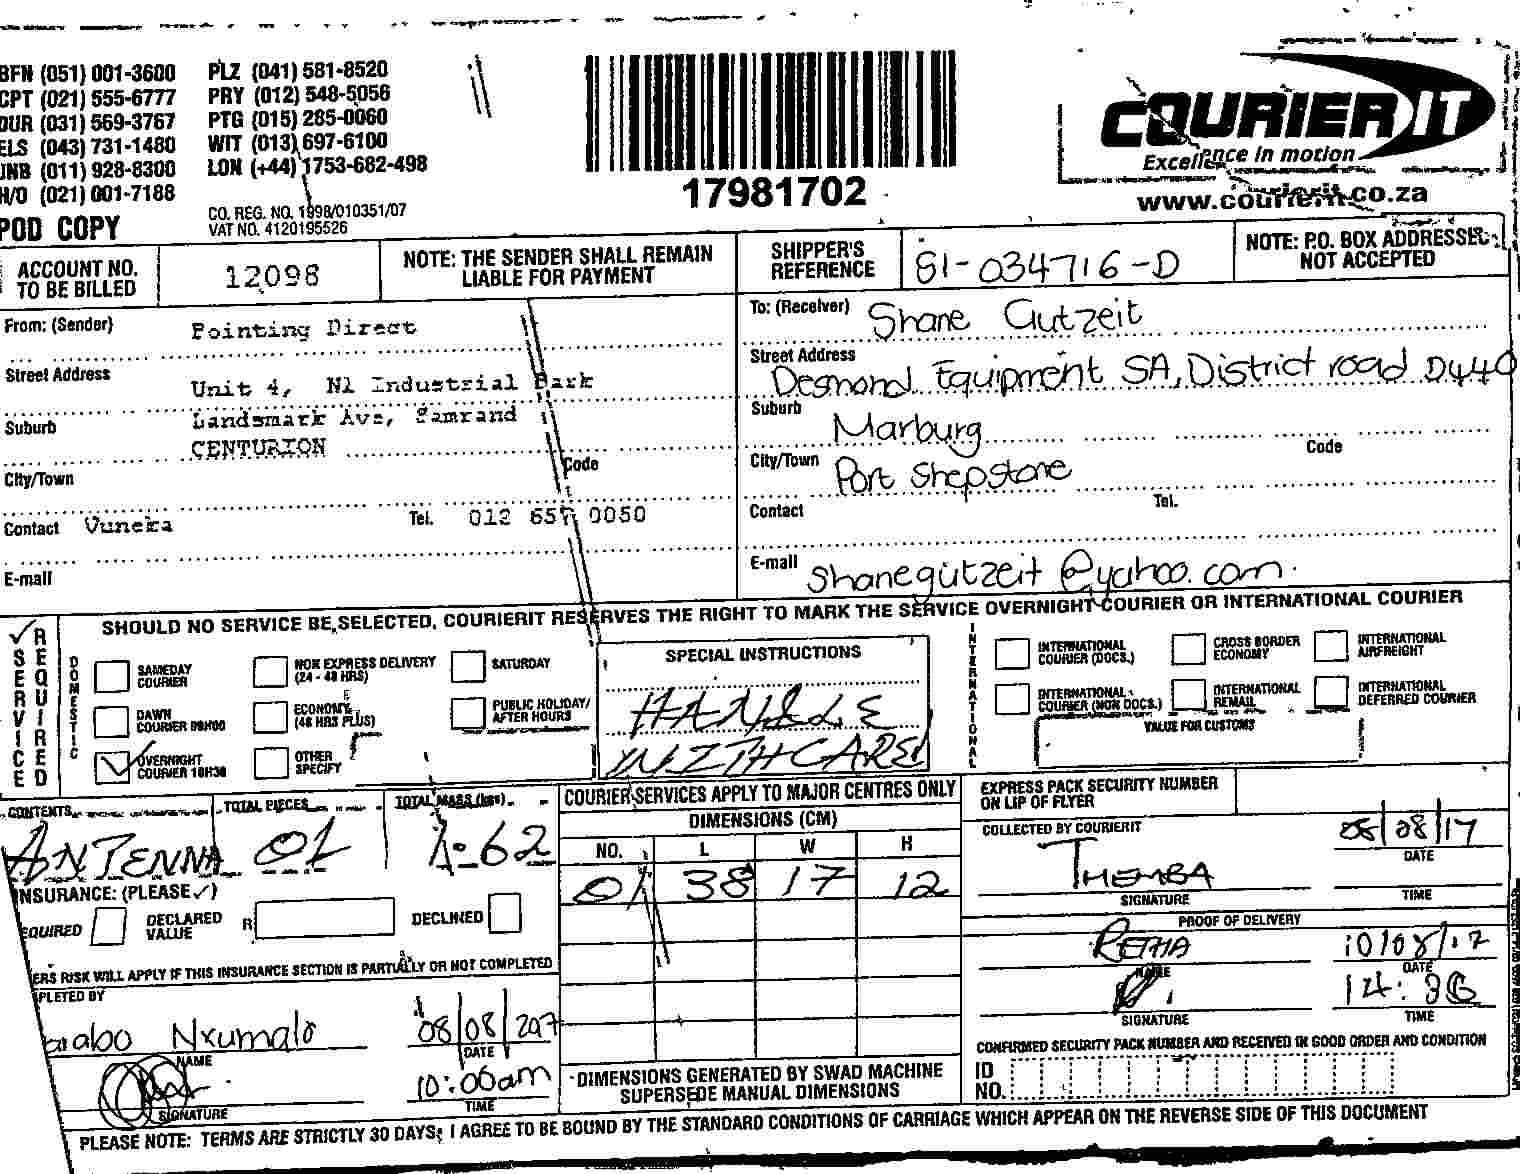 BFN (051) 001-3600 PLZ (041) 581-8520
CPT (021) 555-6777 PRY (012) 548-5056
DUR (031) 569-3767 PTG (015) 285-0060
ELS (043) 731-1480 WIT (013) 697-6100
JNB (011) 928-8300 LON (+44) 1753-682-498
H/O (021) 001-7188
CO. REG. NO. 1998/010351/07
VAT NO. 4120195526
POD COPY
17981702
COURIERIT
Excellence in motion
www.courierit.co.za
ACCOUNT NO. TO BE BILLED
12098
NOTE: THE SENDER SHALL REMAIN LIABLE FOR PAYMENT
SHIPPER'S REFERENCE
SI-034716-D
NOTE: P.O. BOX ADDRESSES NOT ACCEPTED
From: (Sender) Pointing Direct
Street Address Unit 4, N1 Industrial Park
Suburb Landsmark Ave, Samrand
CENTURION
City/Town Code
Contact Tel. 012 657 0050
E-mail
To: (Receiver) Shane Gutzeit
Street Address Desmond Equipment SA, District road D440
Suburb Marburg
Code
City/Town Port Shepstone
Tel.
Contact
E-mail shanegutzeit@yahoo.com.
SHOULD NO SERVICE BE SELECTED, COURIERIT RESERVES THE RIGHT TO MARK THE SERVICE OVERNIGHT COURIER OR INTERNATIONAL COURIER
SERVICE REQUIRED
DOMESTIC
SAMEDAY COURIER
DAWN COURIER 09H00
OVERNIGHT COURIER 10H30
NON EXPRESS DELIVERY (24 - 48 HRS)
ECONOMY (48 HRS PLUS)
OTHER SPECIFY
SATURDAY
PUBLIC HOLIDAY/ AFTER HOURS
SPECIAL INSTRUCTIONS
HANDLE
WITH CARE
INTERNATIONAL
INTERNATIONAL COURIER (DOCS.)
INTERNATIONAL COURIER (NON DOCS.)
CROSS BORDER ECONOMY
INTERNATIONAL REMAIL
INTERNATIONAL AIRFREIGHT
INTERNATIONAL DEFERRED COURIER
VALUE FOR CUSTOMS
CONTENTS TOTAL PIECES TOTAL MASS (kgs)
ANTENNA 01 1.62
INSURANCE: (PLEASE ✓)
EQUIRED DECLARED VALUE R DECLINED
ERS RISK WILL APPLY IF THIS INSURANCE SECTION IS PARTIALLY OR NOT COMPLETED
PLETED BY
arabo Nxumalo 08/08/2017
NAME DATE
10:00am
SIGNATURE TIME
COURIER SERVICES APPLY TO MAJOR CENTRES ONLY
DIMENSIONS (CM)
NO. L W H
01 38 17 12
DIMENSIONS GENERATED BY SWAD MACHINE SUPERSEDE MANUAL DIMENSIONS
EXPRESS PACK SECURITY NUMBER ON LIP OF FLYER
COLLECTED BY COURIERIT
THEMBA 08/08/17
DATE
SIGNATURE TIME
PROOF OF DELIVERY
RETHA 10/08/17
NAME DATE
14:36
SIGNATURE TIME
CONFIRMED SECURITY PACK NUMBER AND RECEIVED IN GOOD ORDER AND CONDITION
ID NO.
PLEASE NOTE: TERMS ARE STRICTLY 30 DAYS; I AGREE TO BE BOUND BY THE STANDARD CONDITIONS OF CARRIAGE WHICH APPEAR ON THE REVERSE SIDE OF THIS DOCUMENT